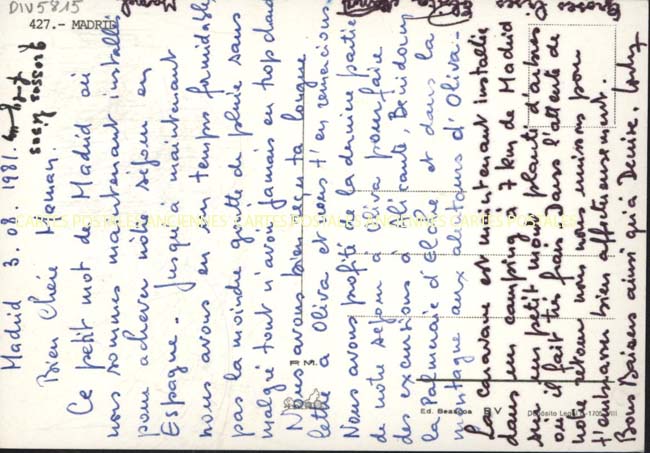 DIV5815
427.- MADRID
Madrid 3.08.1981.
Bien Chère Maman.
Ce petit mot de Madrid où
nous sommes maintenant installés
pour achever notre séjour en
Espagne. Jusqu'à maintenant
nous avons eu un temps formidable
pas la moindre goutte de pluie sans
malgré tout n'avoir jamais eu trop chaud
Nous avons bien reçu ta longue
lettre à Oliva et nous t'en remercions.
Nous avons profité de la dernière partie
de notre séjour à Oliva pour faire
des excursions à Alicante, Benidorm,
la Palmeraie d'Elche et dans la
montagne aux alentours d'Oliva.
La caravane est maintenant installée
dans un camping à 7 km de Madrid
sur un petit mont planté d'arbres
où il fait très frais. Dans l'attente de
notre retour nous nous unissons pour
t'embrasser bien affectueusement.
Bons Baisers ainsi qu'à Denise.
grosses bises
grosses bises
CARTES POSTALES ANCIENNES CARTES POSTALES ANCIENNES CARTES POSTALES
R.M.
Ed. Beascoa
B.V
Depósito Legal